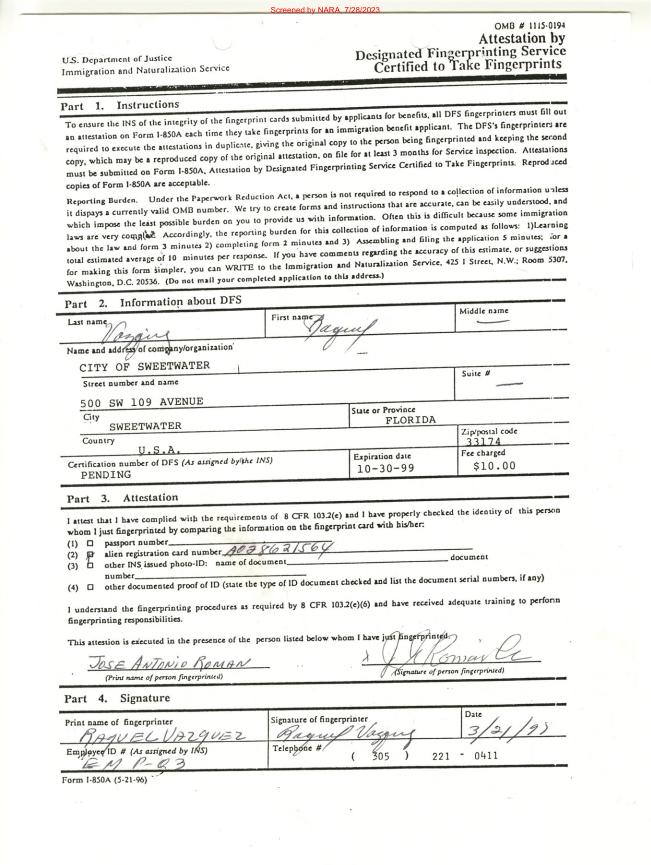 Screened by NARA, 7/28/2023
OMB # 1115-0194
Attestation by
U.S. Department of Justice
Designated Fingerprinting Service
Immigration and Naturalization Service
Certified to Take Fingerprints
Part 1. Instructions
To ensure the INS of the integrity of the fingerprint cards submitted by applicants for benefits, all DFS fingerprinters must fill out
an attestation on Form I-850A each time they take fingerprints for an immigration benefit applicant. The DFS's fingerprinters are
required to execute the attestations in duplicate, giving the original copy to the person being fingerprinted and keeping the second
copy, which may be a reproduced copy of the original attestation, on file for at least 3 months for Service inspection. Attestations
must be submitted on Form I-850A, Attestation by Designated Fingerprinting Service Certified to Take Fingerprints. Reproduced
copies of Form I-850A are acceptable.
Reporting Burden. Under the Paperwork Reduction Act, a person is not required to respond to a collection of information unless
it dispays a currently valid OMB number. We try to create forms and instructions that are accurate, can be easily understood, and
which impose the least possible burden on you to provide us with information. Often this is difficult because some immigration
laws are very Accordingly, the reporting burden for this collection of information is computed as follows: 1)Learning
about the law and form 3 minutes 2) completing form 2 minutes and 3) Assembling and filing the application 5 minutes; for a
total estimated average of 10 minutes per response. If you have comments regarding the accuracy of this estimate, or suggestions
for making this form simpler, you can WRITE to the Immigration and Naturalization Service, 425 I Street, N.W.; Room 5307,
Washington, D.C. 20536. (Do not mail your completed application to this address.)
Part 2. Information about DFS
Last name First name Middle name
Raquel
Name and address of company/organization
CITY OF SWEETWATER
Street number and name Suite #
500 SW 109 AVENUE
City State or Province
SWEETWATER FLORIDA
Country Zip/postal code
U.S.A. 33174
Certification number of DFS (As assigned by the INS) Expiration date Fee charged
PENDING 10-30-99 $10.00
Part 3. Attestation
I attest that I have complied with the requirements of 8 CFR 103.2(e) and I have properly checked the identity of this person
whom I just fingerprinted by comparing the information on the fingerprint card with his/her:
(1) passport number
(2) alien registration card number A028621564
(3) other INS issued photo-ID: name of document document
number
(4) other documented proof of ID (state the type of ID document checked and list the document serial numbers, if any)
I understand the fingerprinting procedures as required by 8 CFR 103.2(e)(6) and have received adequate training to perform
fingerprinting responsibilities.
This attestion is executed in the presence of the person listed below whom I have just fingerprinted.
JOSE ANTONIO ROMAN
(Print name of person fingerprinted) (Signature of person fingerprinted)
Part 4. Signature
Print name of fingerprinter Signature of fingerprinter Date
RAQUEL VAZQUEZ Raquel Vazquez
Employee ID # (As assigned by INS) Telephone #
EMP-03 ( 305 ) 221 - 0411
Form I-850A (5-21-96)